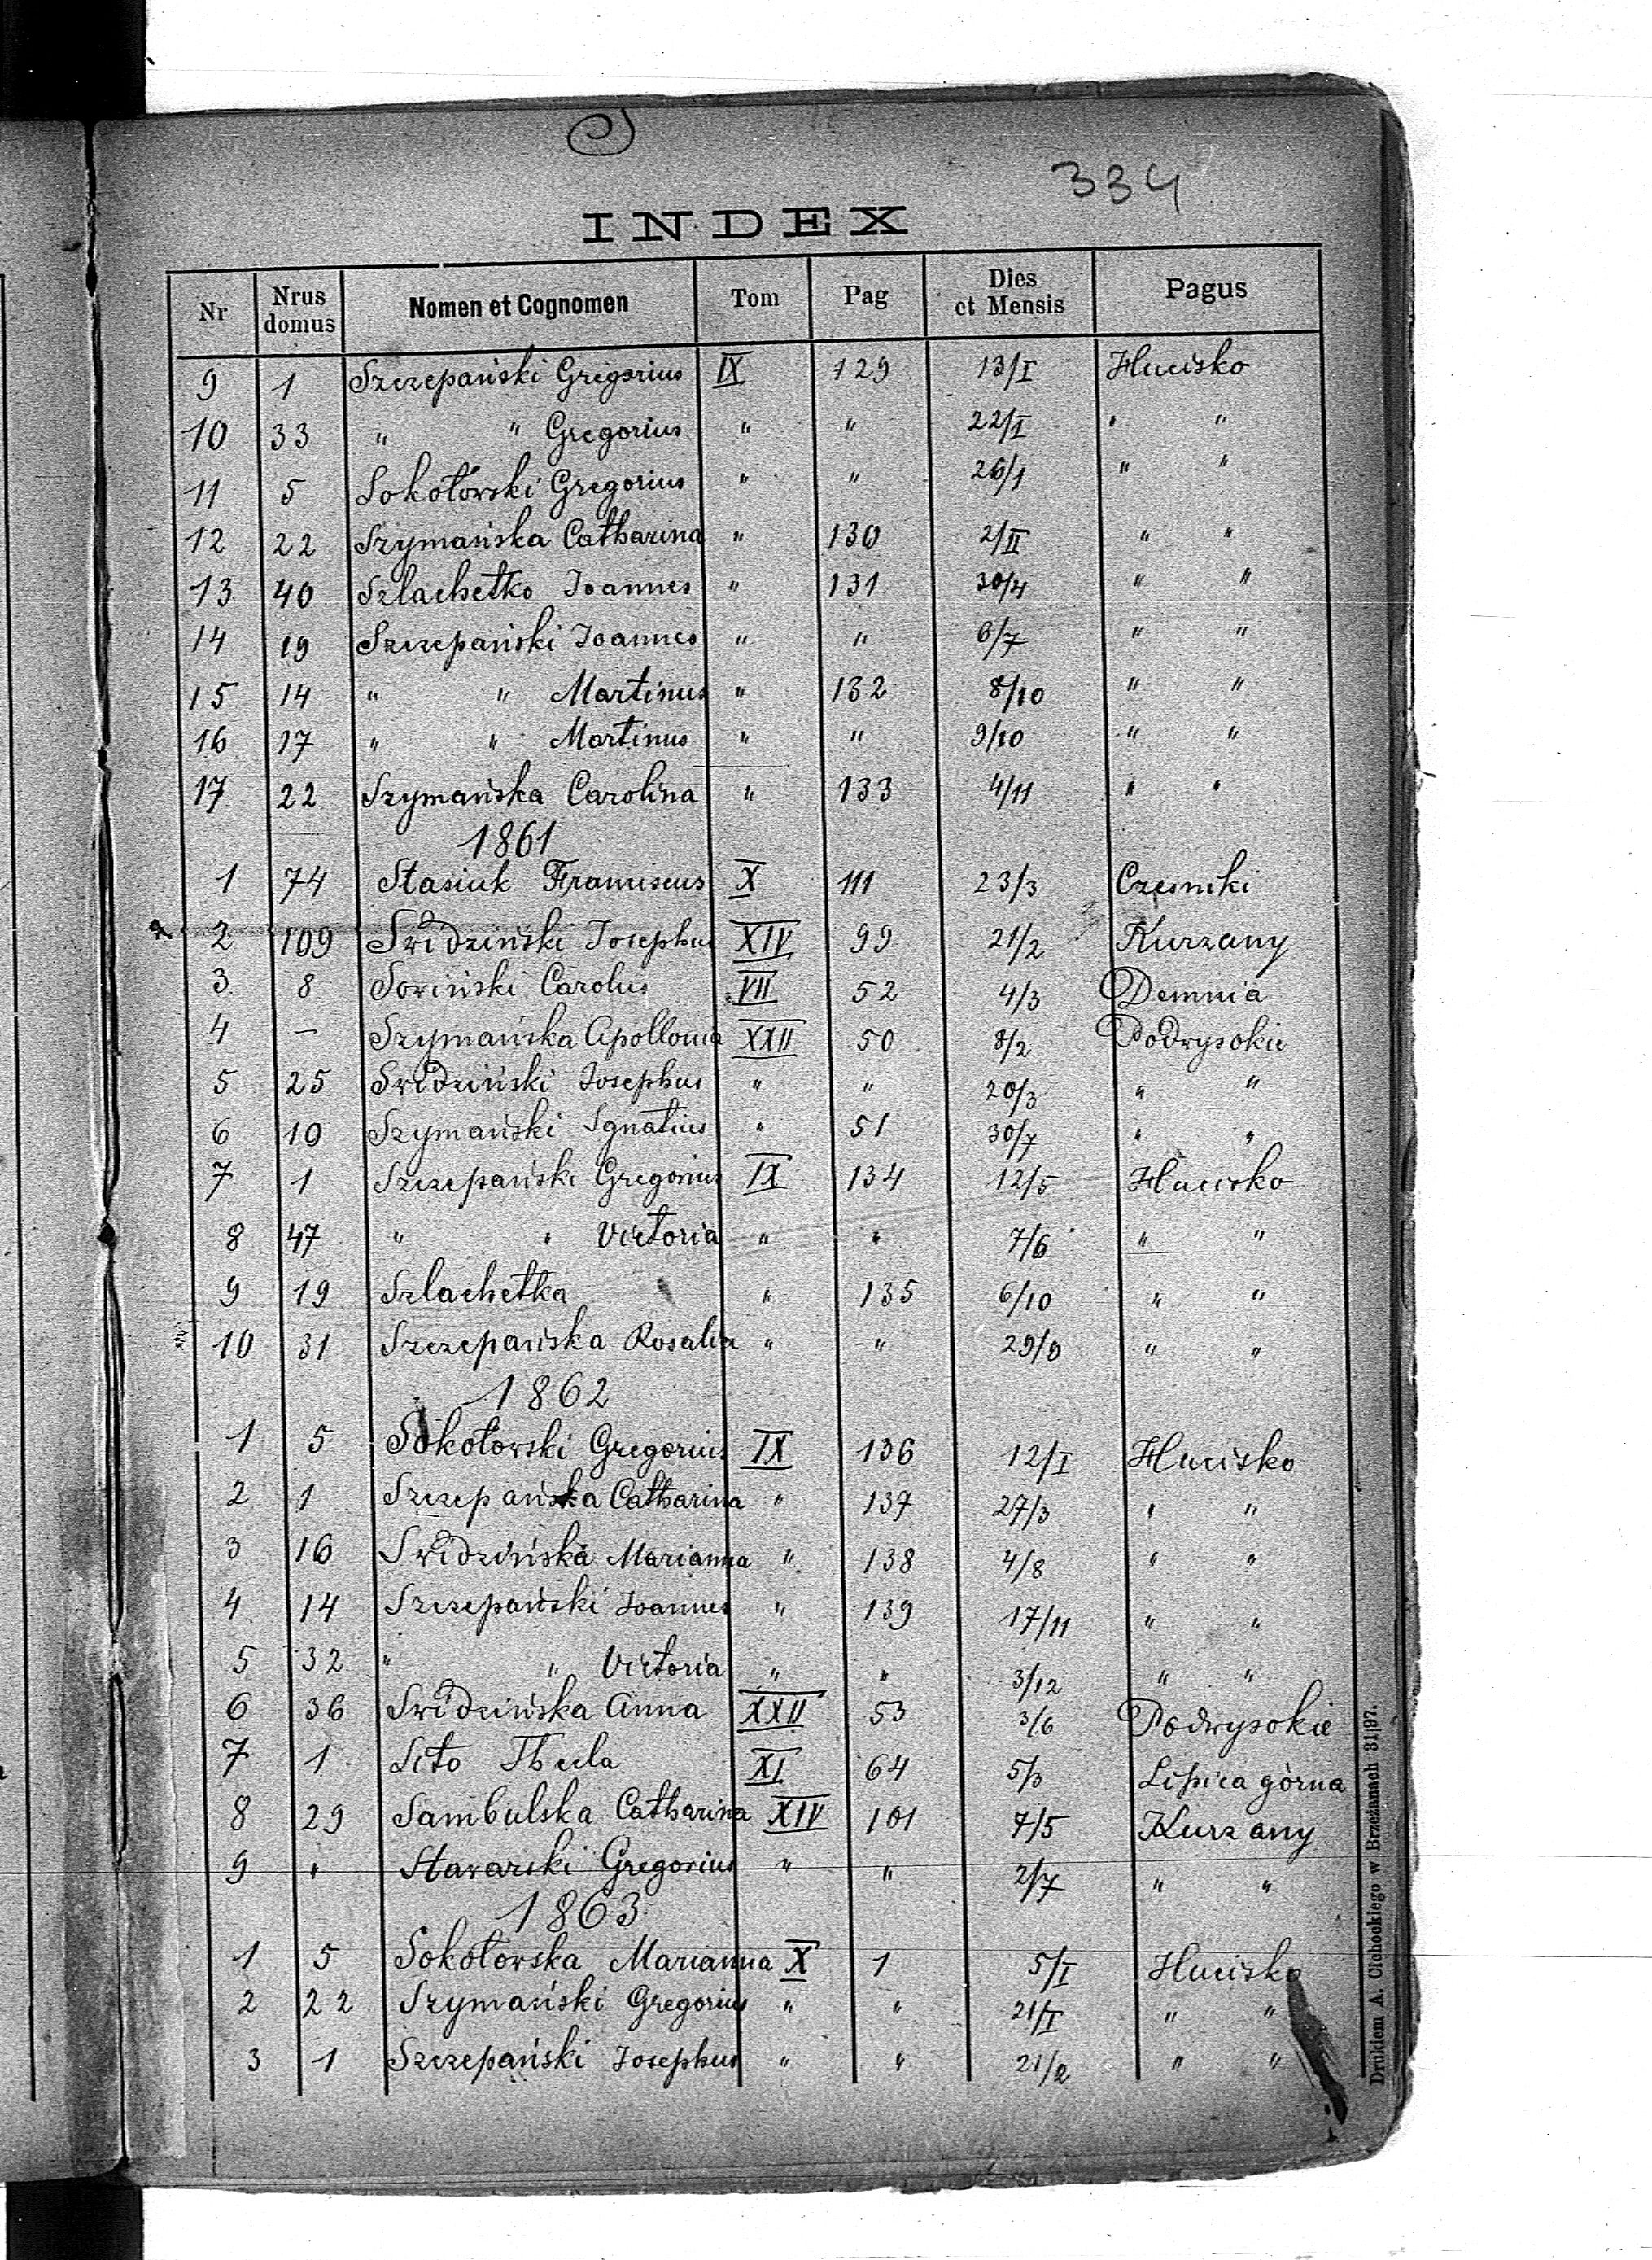 S
334
INDEX
Nr Nrus domus Nomen et Cognomen Tom Pag Dies et Mensis Pagus
9 1 Szczepański Gregorius IX 129 13/I Hucisko
10 33 " " Gregorius " " 22/I " "
11 5 Sokołowski Gregorius " " 26/1 " "
12 22 Szymańska Catharina " 130 2/II " "
13 40 Szlachetko Joannes " 131 30/4 " "
14 19 Szczepański Joannes " " 6/7 " "
15 14 " " Martinus " 132 8/10 " "
16 17 " " Martinus " " 9/10 " "
17 22 Szymańska Carolina " 133 4/11 " "
1861
1 74 Stasiuk Franciscus X 111 23/3 Czesniki
2 109 Swidziński Josephus XIV 99 21/2 Kurzany
3 8 Sowiński Carolus VII 52 4/3 Demnia
4 — Szymańska Apollonia XXII 50 8/2 Podwysokie
5 25 Swidziński Josephus " " 20/3 " "
6 10 Szymański Ignatius " 51 30/7 " "
7 1 Szczepański Gregorius IX 134 12/5 Hucisko
8 47 " " Victoria " " 7/6 " "
9 19 Szlachetka " 135 6/10 " "
10 31 Szczepańska Rosalia " " " "
1862
1 5 Sokołowski Gregorius IX 136 12/I Hucisko
2 1 Szczepańska Catharina " 137 27/3 " "
3 16 Swidzińska Marianna " 138 4/8 " "
4 14 Szczepański Joannes " 139 17/11 " "
5 32 " " Victoria " " 3/12 " "
6 36 Swidzińska Anna XXII 53 3/6 Podwysokie
7 1 Sito Thecla XI 64 5/3 Lipica górna
8 29 Sambulska Catharina XIV 101 7/5 Kurzany
9 " Stawarski Gregorius " " 2/7 " "
1863
1 5 Sokołowska Marianna X 1 5/I Hucisko
2 22 Szymański Gregorius " " 21/I " "
3 1 Szczepański Josephus " " 21/2 " "
Drukiem A. Cichockiego w Brzeżanach 31|97.